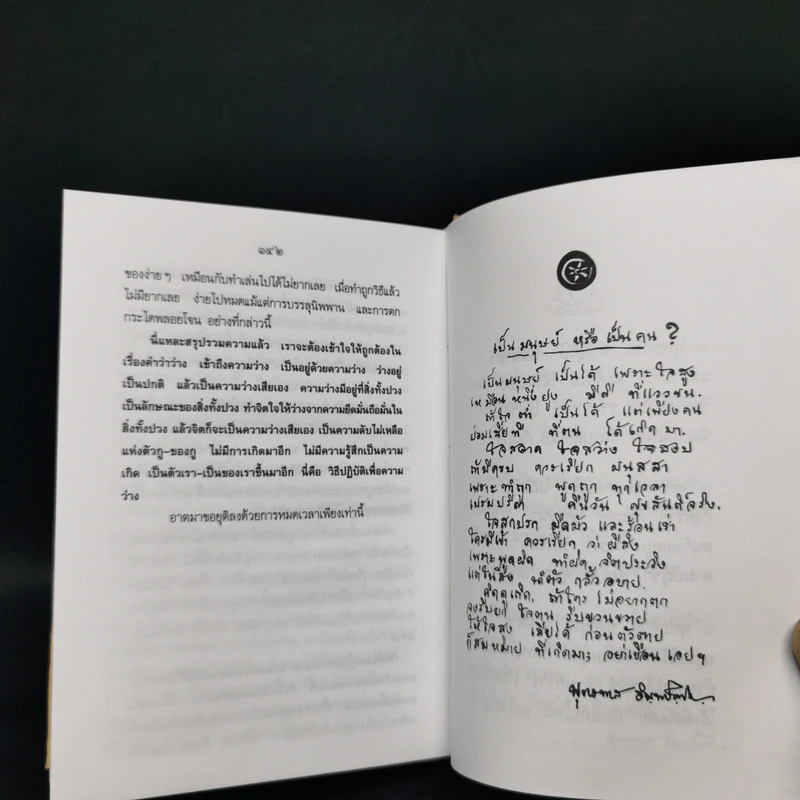 ๑๔๒
ของง่ายๆ เหมือนกับทำเล่นไปได้ไม่ยากเลย เมื่อทำถูกวิธีแล้ว
ไม่มียากเลย ง่ายไปหมดแม้แต่การบรรลุนิพพาน และการตก
กระไดพลอยโจน อย่างที่กล่าวนี้
นี่แหละสรุปรวมความแล้ว เราจะต้องเข้าใจให้ถูกต้องใน
เรื่องคำว่าว่าง เข้าถึงความว่าง เป็นอยู่ด้วยความว่าง ว่างอยู่
เป็นปกติ แล้วเป็นความว่างเสียเอง ความว่างมีอยู่ที่สิ่งทั้งปวง
เป็นลักษณะของสิ่งทั้งปวง ทำจิตใจให้ว่างจากความยึดมั่นถือมั่นใน
สิ่งทั้งปวง แล้วจิตก็จะเป็นความว่างเสียเอง เป็นความดับไม่เหลือ
แห่งตัวกู-ของกู ไม่มีการเกิดมาอีก ไม่มีความรู้สึกเป็นความ
เกิด เป็นตัวเรา-เป็นของเราขึ้นมาอีก นี่คือ วิธีปฏิบัติเพื่อความ
ว่าง
อาตมาขอยุติลงด้วยการหมดเวลาเพียงเท่านี้
เป็นมนุษย์ หรือ เป็นคน ?
เป็นมนุษย์ เป็นได้ เพราะใจสูง
เหมือนหนึ่งยูง มีดี ที่แววขน.
ถ้าใจต่ำ เป็นได้ แต่เพียงคน
ย่อมเสียที ที่ตน ได้เกิดมา.
ใจสอาด ใจสว่าง ใจสงบ
ถ้ามีครบ ควรเรียก มนุสสา
เพราะทำถูก พูดถูก ทุกเวลา
เปรมปรีดา คืนวัน ศุขสันต์จริง.
ใจสกปรก มืดมัว และร้อนเร่า
ใครมีเข้า ควรเรียก ว่าผีสิง
เพราะพูดผิด ทำผิด จิตประวิง
แต่ในสิ่ง นำตัว กลั้วอบาย.
คิดดูเถิด, ถ้าใคร ไม่อยากตก
จงรีบยก ใจตน รีบขวนขวาย
ให้ใจสูง เสียได้ ก่อนตัวตาย
ก็สมหมาย ที่เกิดมา; อย่าเชือนเอยฯ
พุทธทาส อินทปัญโญ